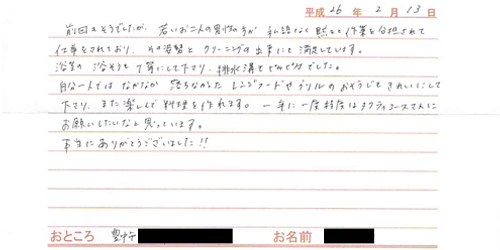 平成 26 年 2 月 13 日
前回もそうでしたが、若いお二人の男性の方が 私語なく黙々と作業を分担されて
仕事をされており、その姿勢と クリーニングの出来にも満足しています。
浴室の 浴そうも丁寧にして下さり、排水溝も でした。
自分一人では なかなか 落ちなかった レンジフードやグリルの おそうじも きれいにして
下さり、また楽しんで 料理を作れます。 一年に一度程度は コースで
お願いしたいなと思っています。
本当に ありがとうございました!!
おところ 豊中市
お名前